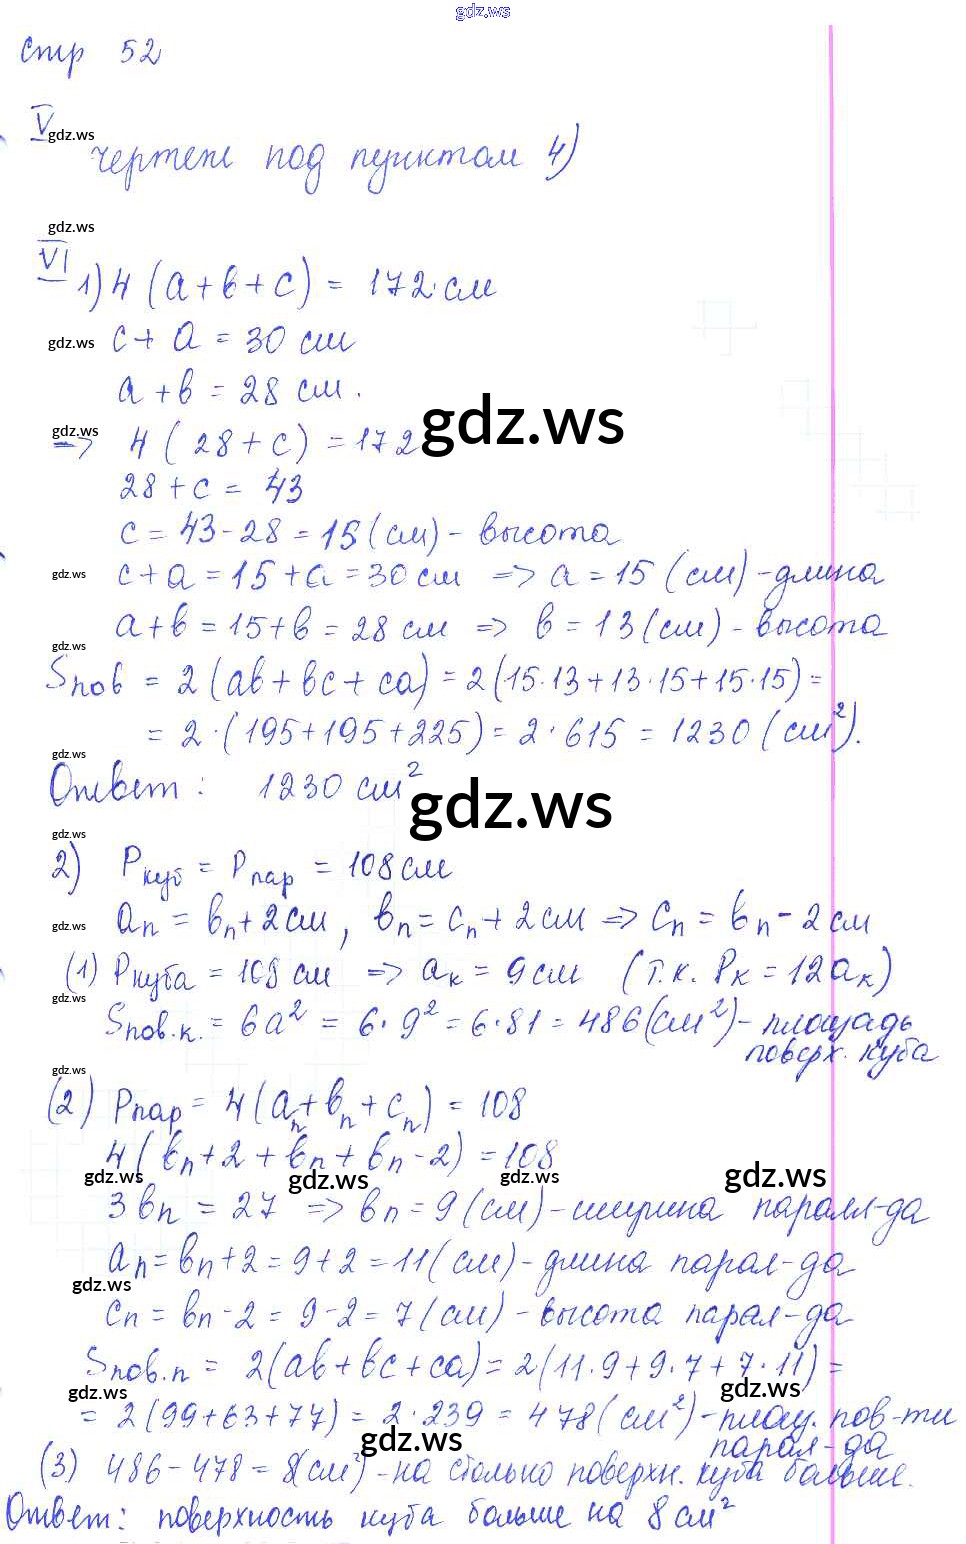 gdz.ws
Стр 52
V
gdz.ws
чертеж под пунктом 4)
gdz.ws
VI
1) 4 (a + b + c) = 172 см
gdz.ws c + a = 30 см
a + b = 28 см.
gdz.ws
gdz.ws
=> 4 ( 28 + c ) = 172
28 + c = 43
c = 43 - 28 = 15 (см) - высота
gdz.ws c + a = 15 + a = 30 см => a = 15 (см) - длина
a + b = 15 + b = 28 см => b = 13 (см) - высота
gdz.ws
Sпов = 2 (ab + bc + ca) = 2 (15·13 + 13·15 + 15·15) =
= 2 · (195 + 195 + 225) = 2 · 615 = 1230 (см²).
gdz.ws
Ответ: 1230 см²
gdz.ws
gdz.ws
2) Pкуб = Pпар = 108 см
gdz.ws aп = bп + 2 см, bп = cп + 2 см => cп = bп - 2 см
(1) Pкуба = 108 см => aк = 9 см (т.к. Pк = 12aк)
gdz.ws
Sпов.к. = 6a² = 6·9² = 6·81 = 486 (см²) - площадь
поверх. куба
gdz.ws
(2) Pпар = 4 (aп + bп + cп) = 108
4 (bп + 2 + bп + bп - 2) = 108
gdz.ws gdz.ws gdz.ws gdz.ws
3bп = 27 => bп = 9 (см) - ширина паралл-да
aп = bп + 2 = 9 + 2 = 11 (см) - длина парал-да
gdz.ws
cп = bп - 2 = 9 - 2 = 7 (см) - высота парал-да
Sпов.п = 2 (ab + bc + ca) = 2 (11·9 + 9·7 + 7·11) =
gdz.ws gdz.ws
= 2 (99 + 63 + 77) = 2 · 239 = 478 (см²) - площ. пов-ти
парал-да
gdz.ws
(3) 486 - 478 = 8 (см²) - на столько поверхн. куба больше.
Ответ: поверхность куба больше на 8 см²